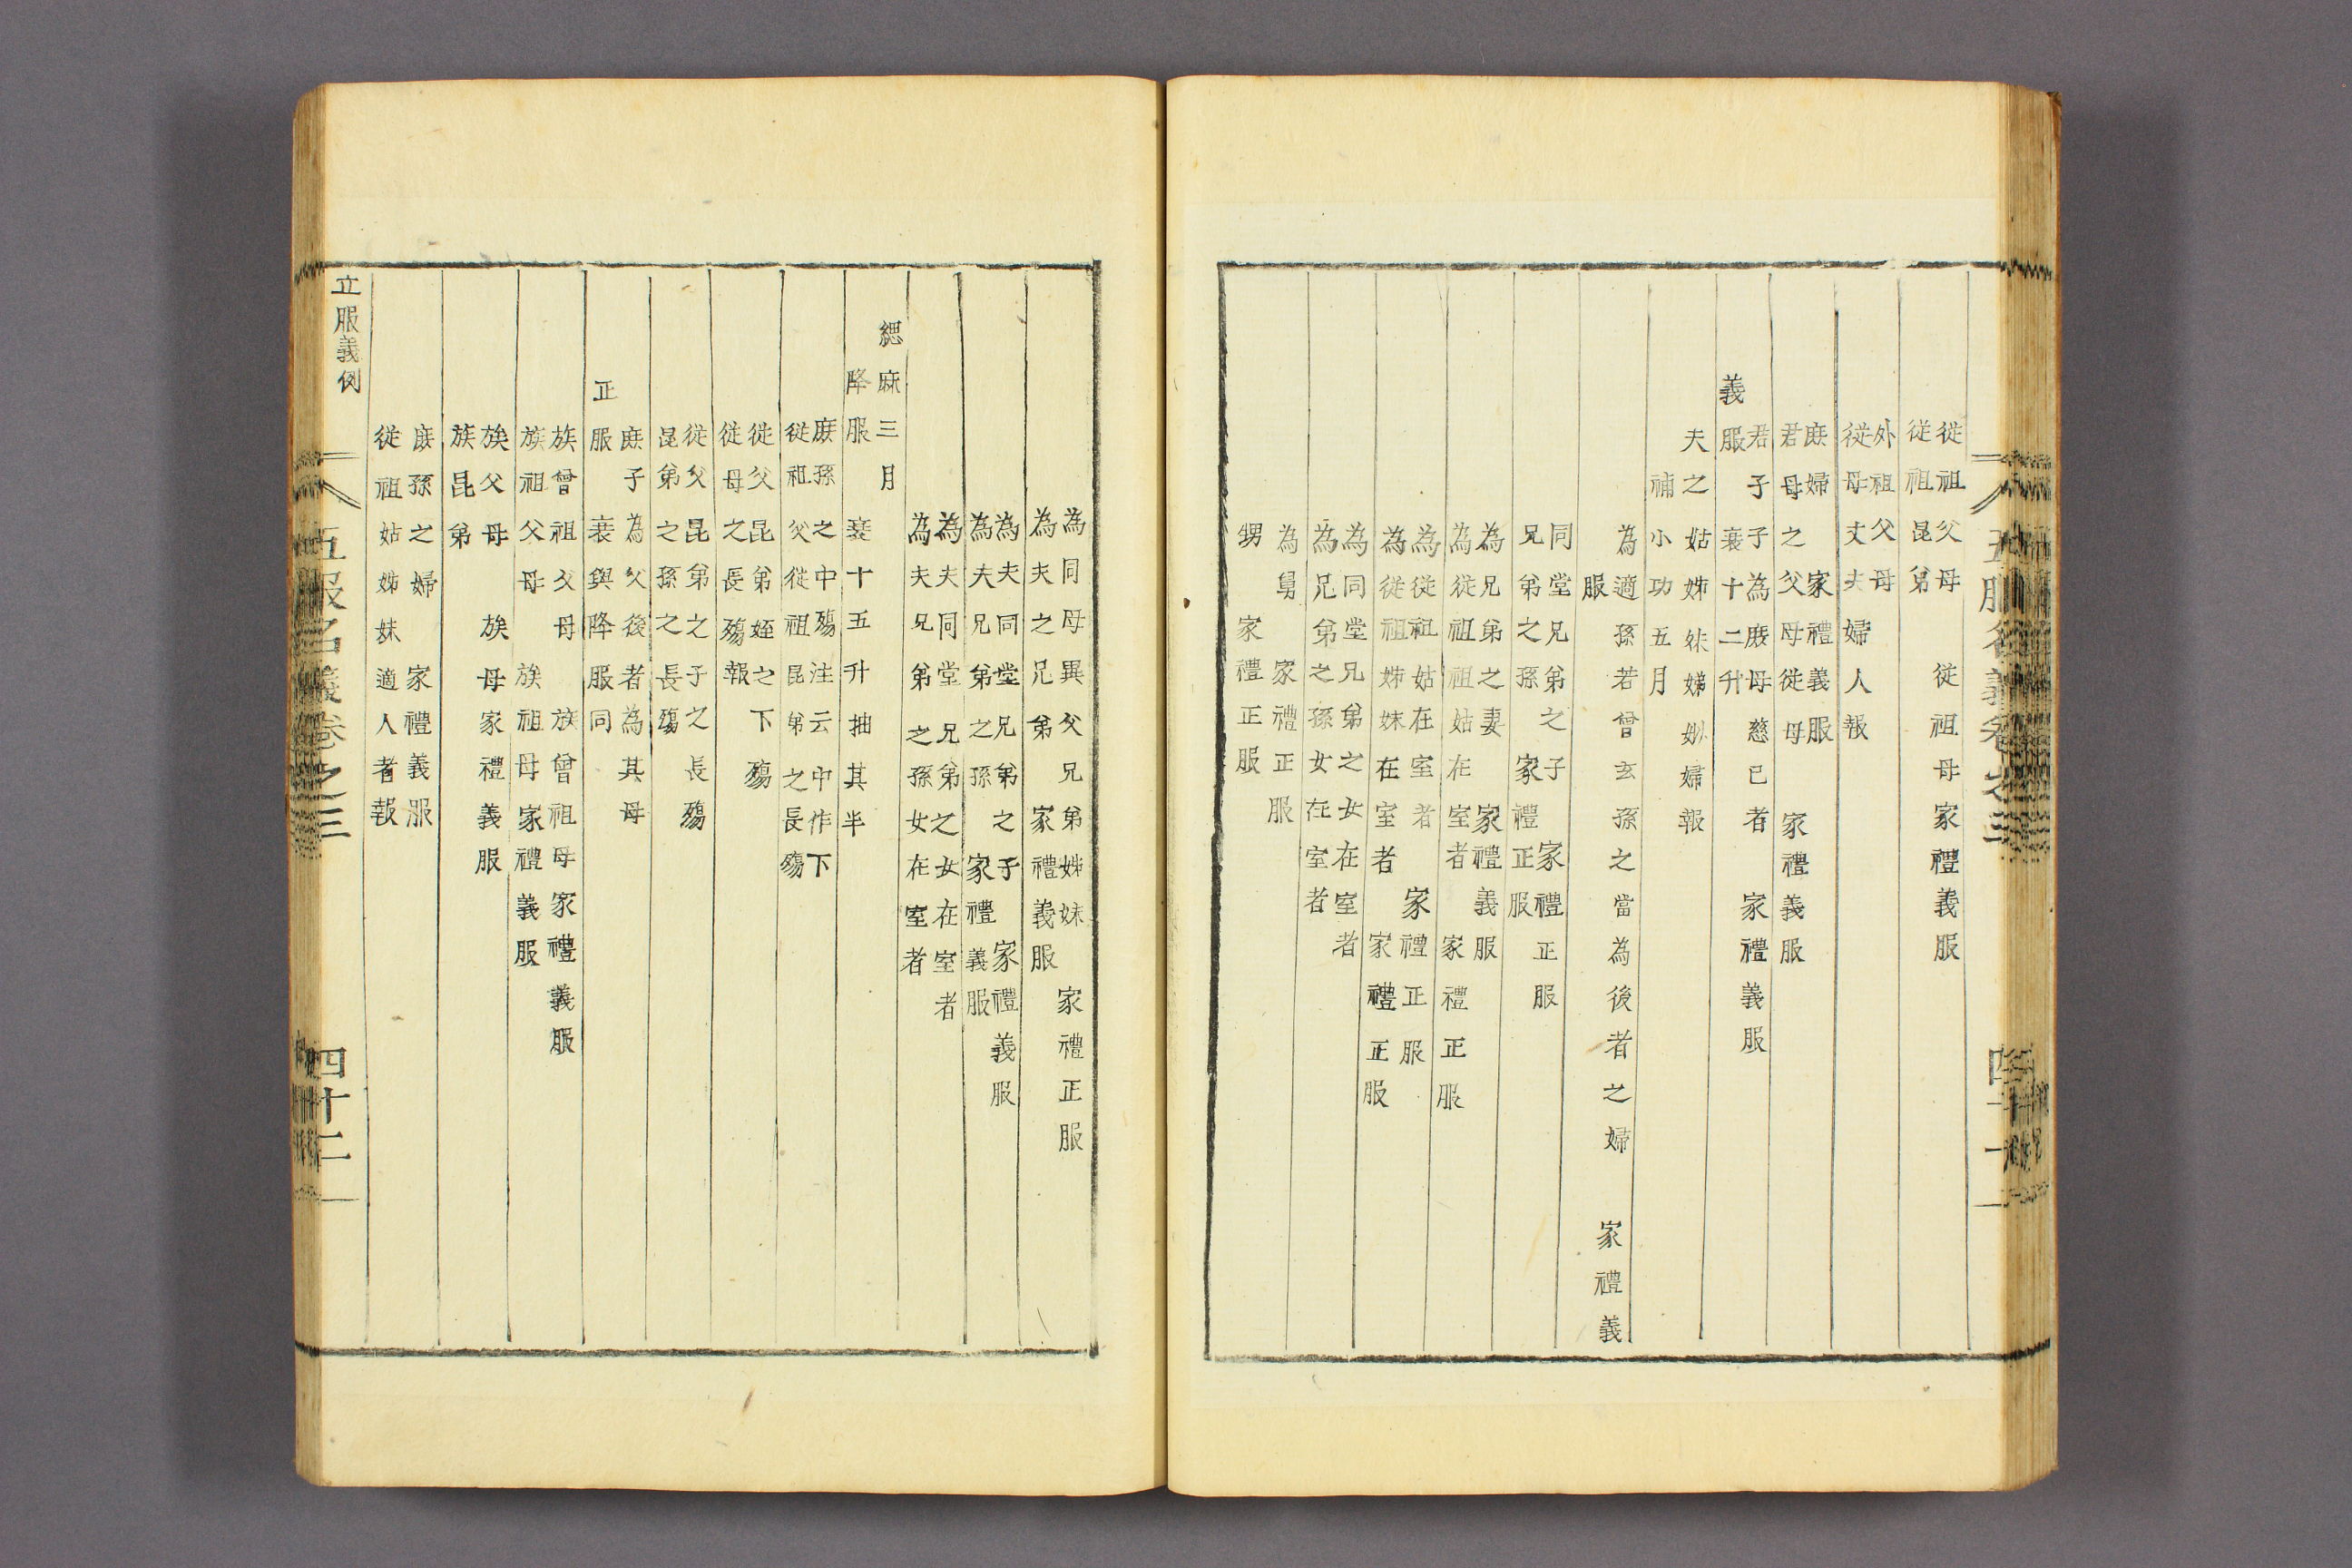 五服名義卷之三
四十一
從祖父母　從祖母家禮義服
從祖昆弟
外祖父母
從母丈夫婦人報
庶婦　家禮義服
君母之父母從母　家禮義服
君子子為庶母慈已者　家禮義服
義服　衰十二升
夫之姑姊妹娣姒婦報
補小功五月
為適孫若曾玄孫之當為後者之婦　家禮義
服
同堂兄弟之子　家禮正服
兄弟之孫　家禮正服
為兄弟之妻　家禮義服
為從祖祖姑在室者　家禮正服
為從祖姑在室者　家禮正服
為從祖姊妹在室者　家禮正服
為同堂兄弟之女在室者
為兄弟之孫女在室者
為舅　家禮正服
甥　家禮正服
為同母異父兄弟姊妹　家禮正服
為夫之兄弟　家禮義服
為夫同堂兄弟之子　家禮義服
為夫兄弟之孫　家禮義服
為夫同堂兄弟之女在室者
為夫兄弟之孫女在室者
緦麻三月
降服　衰十五升抽其半
庶孫之中殤注云中作下
從祖父從祖昆弟之長殤
從父昆弟姪之下殤
從母之長殤報
從父昆弟之子之長殤
昆弟之孫之長殤
庶子為父後者為其母
正服　衰與降服同
族曾祖父母　族曾祖母家禮義服
族祖父母　族祖母家禮義服
族父母　族母家禮義服
族昆弟
庶孫之婦　家禮義服
從祖姑姊妹適人者報
立服義例
五服名義卷之三
四十二